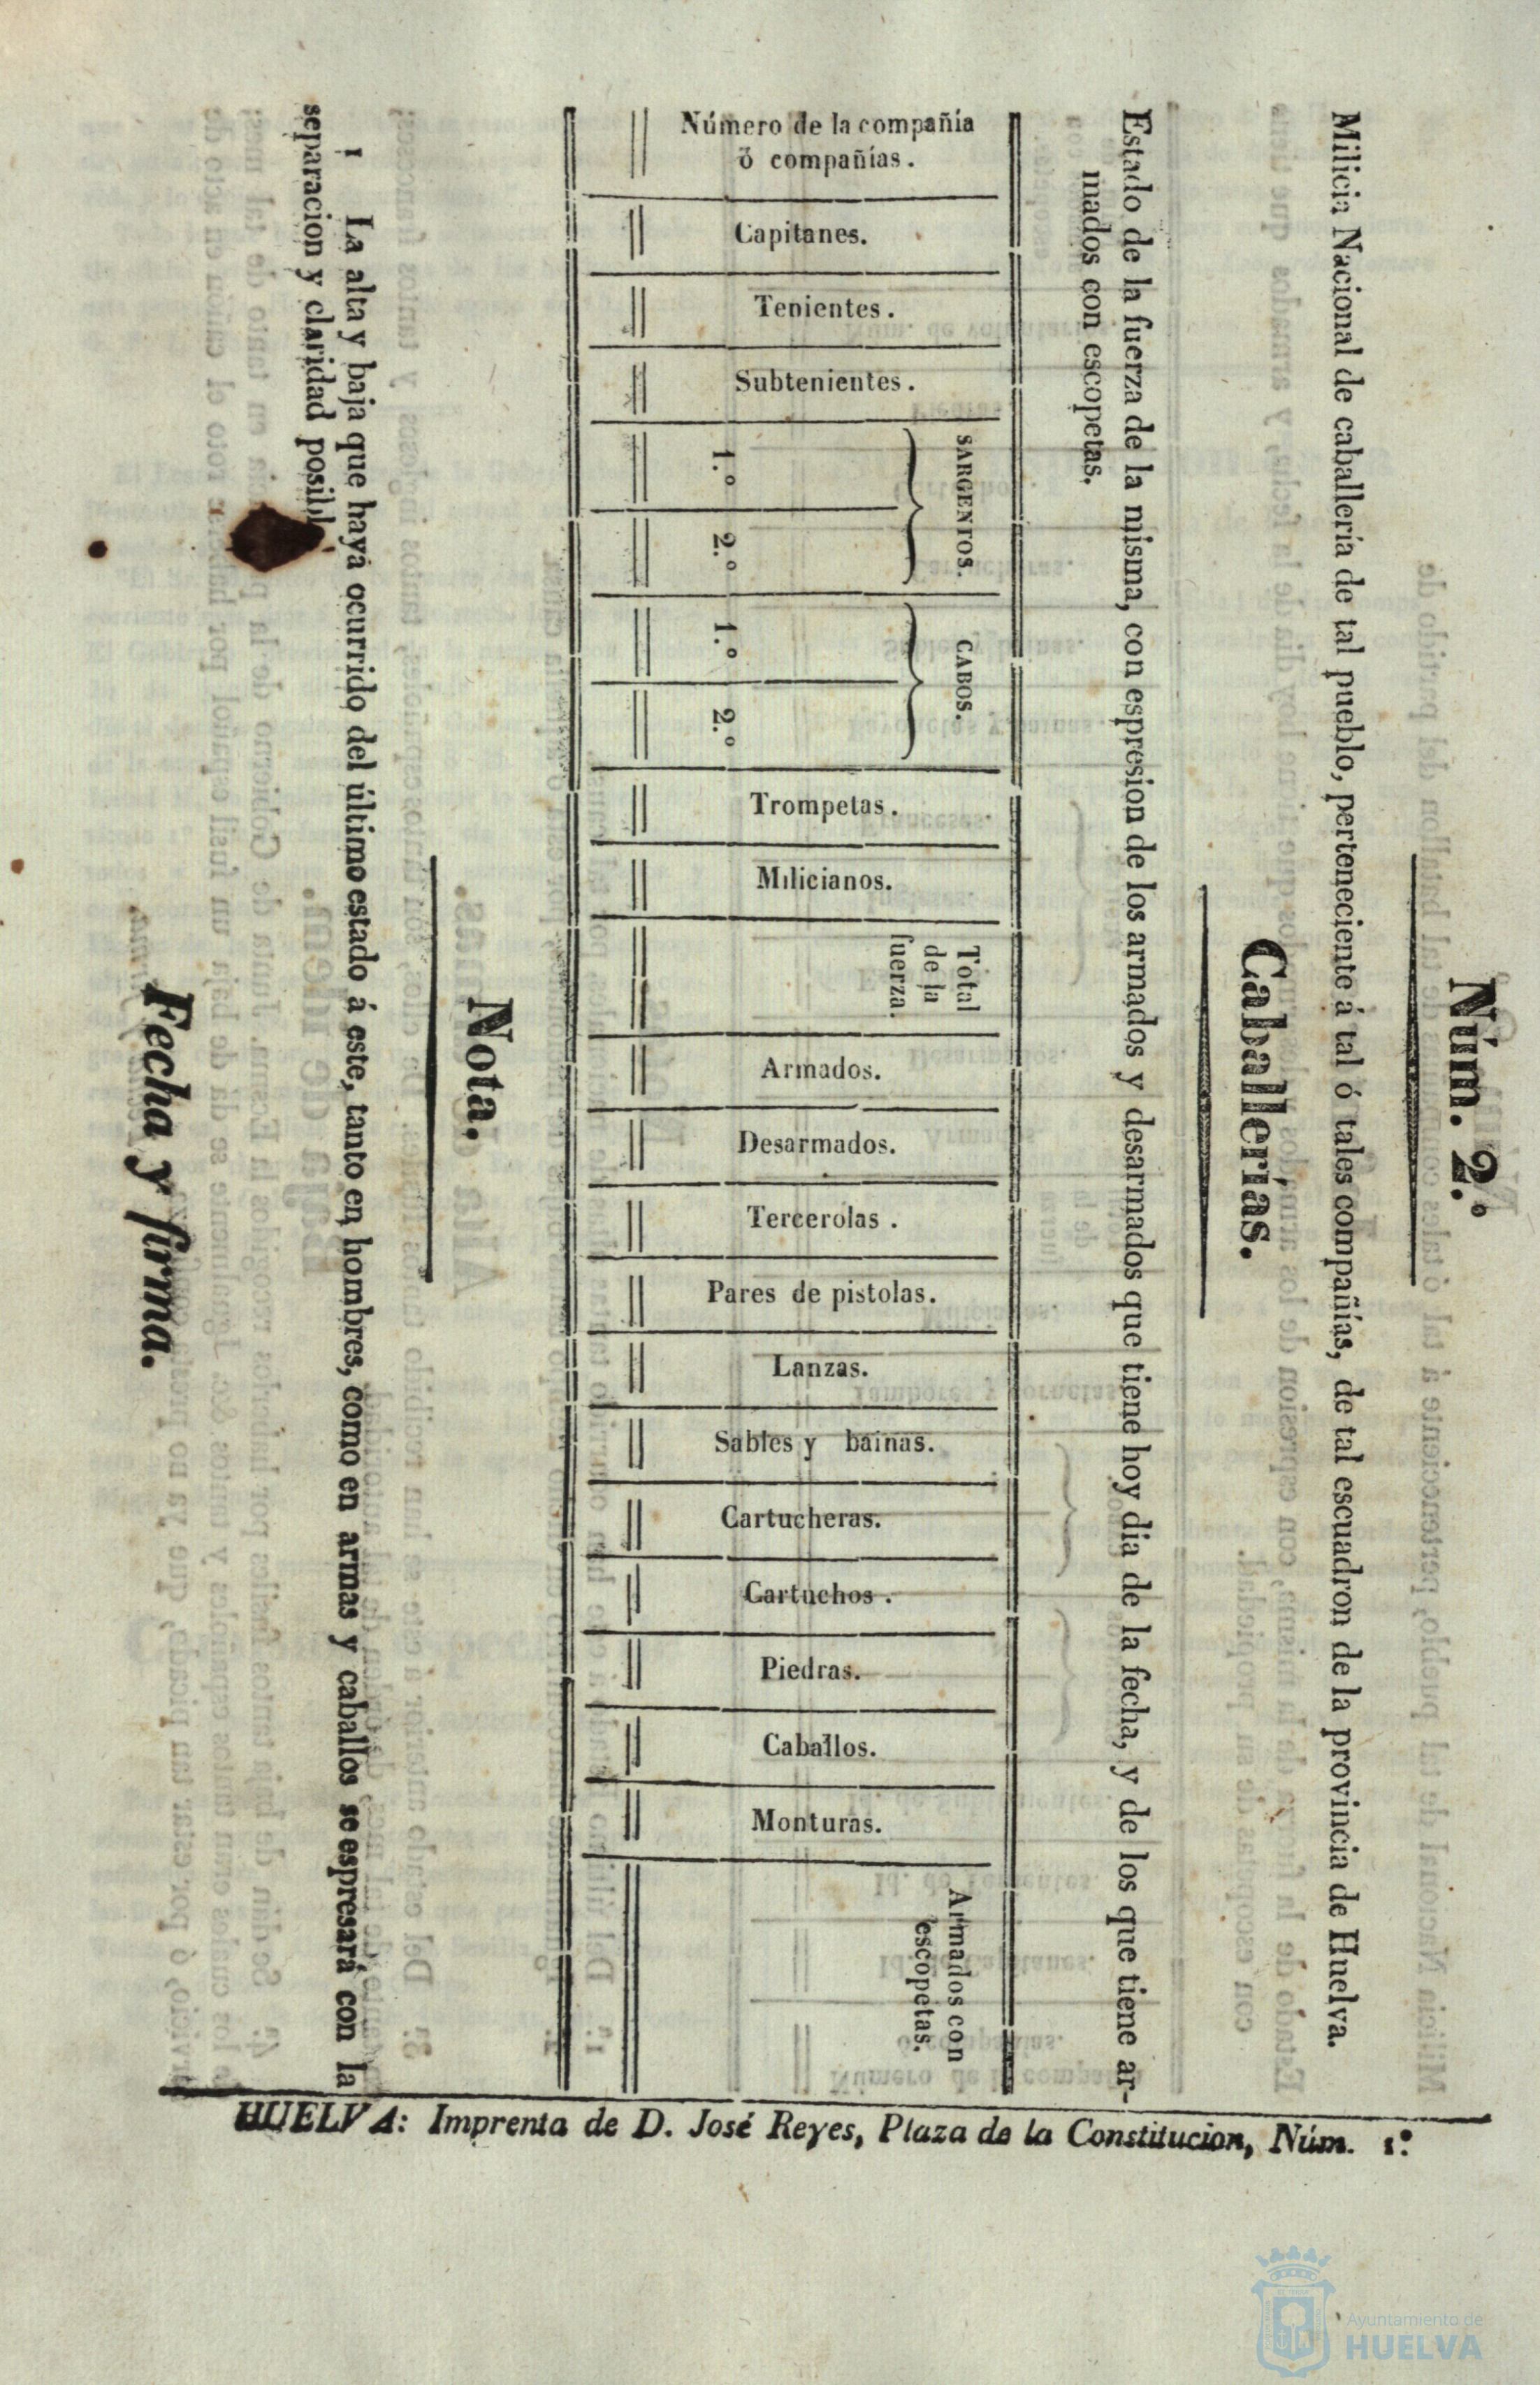 Núm. 2.º
Milicia Nacional de caballería de tal pueblo, perteneciente á tal ó tales compañías, de tal escuadron de la provincia de Huelva.
Caballerías.
Estado de la fuerza de la misma, con espresion de los armados y desarmados que tiene hoy dia de la fecha, y de los que tiene ar-
mados con escopetas.
Número de la compañía
ó compañías.
Capitanes.
Tenientes.
Subtenientes.
SARGENTOS.
1.º
2.º
CABOS.
1.º
2.º
Trompetas.
Milicianos.
Total
de la
fuerza.
Armados.
Desarmados.
Tercerolas.
Pares de pistolas.
Lanzas.
Sables y bainas.
Cartucheras.
Cartuchos.
Piedras.
Caballos.
Monturas.
Armados con
escopetas.
Nota.
1 La alta y baja que haya ocurrido del último estado á este, tanto en hombres, como en armas y caballos se espresará con la
separacion y claridad
Fecha y firma.
HUELVA: Imprenta de D. José Reyes, Plaza de la Constitucion, Núm. 1.º
Ayuntamiento de
HUELVA